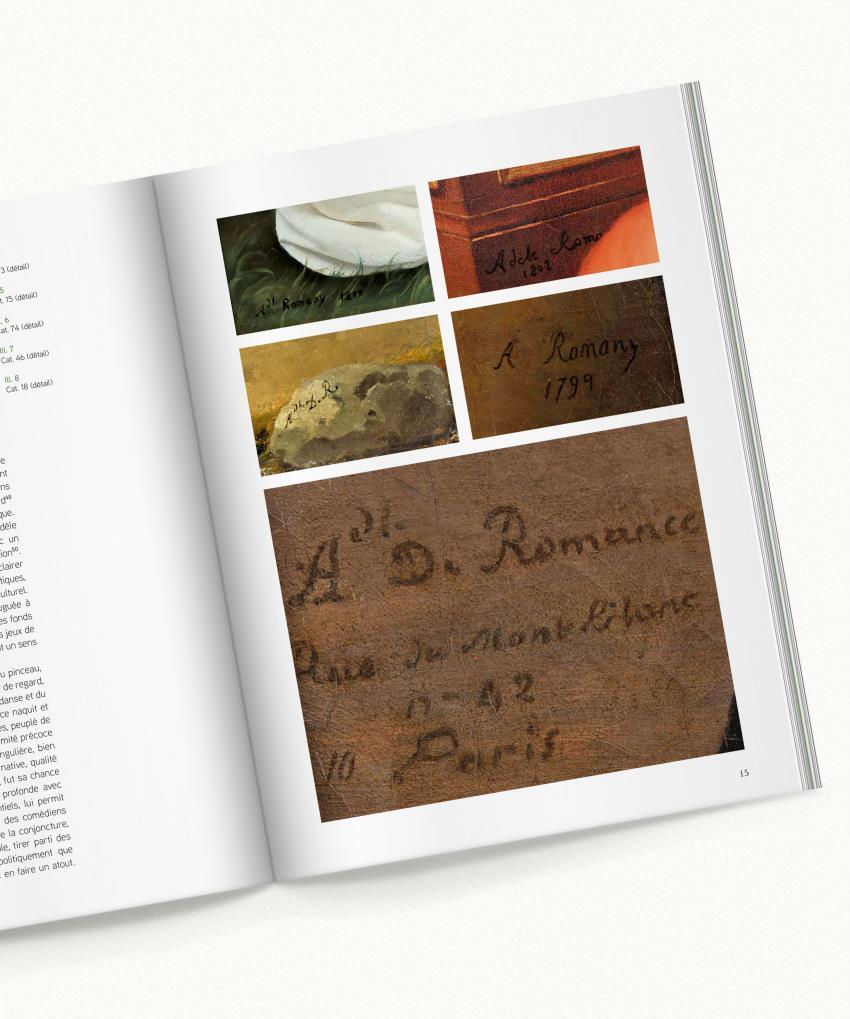 3 (détail)
5
t. 15 (détail)
. 6
at. 74 (détail)
Ill. 7
Cat. 46 (détail)
Ill. 8
Cat. 18 (détail)
e
nt
ns
d⁴⁸
que.
dèle
c un
ion⁵⁰.
clairer
tiques,
ulturel.
uguée à
es fonds
s jeux de
t un sens
u pinceau,
de regard,
danse et du
ce naquit et
es, peuplé de
mité précoce
ngulière, bien
native, qualité
, fut sa chance
profonde avec
tiels, lui permit
des comédiens
e la conjoncture,
le, tirer parti des
politiquement que
en faire un atout.
Adl. Romany
Adele Roma
1802
Adl. D. R.
A Romany
1799
Adl. De Romance
Rue du Mont Blanc
n- 42
10 Paris
15